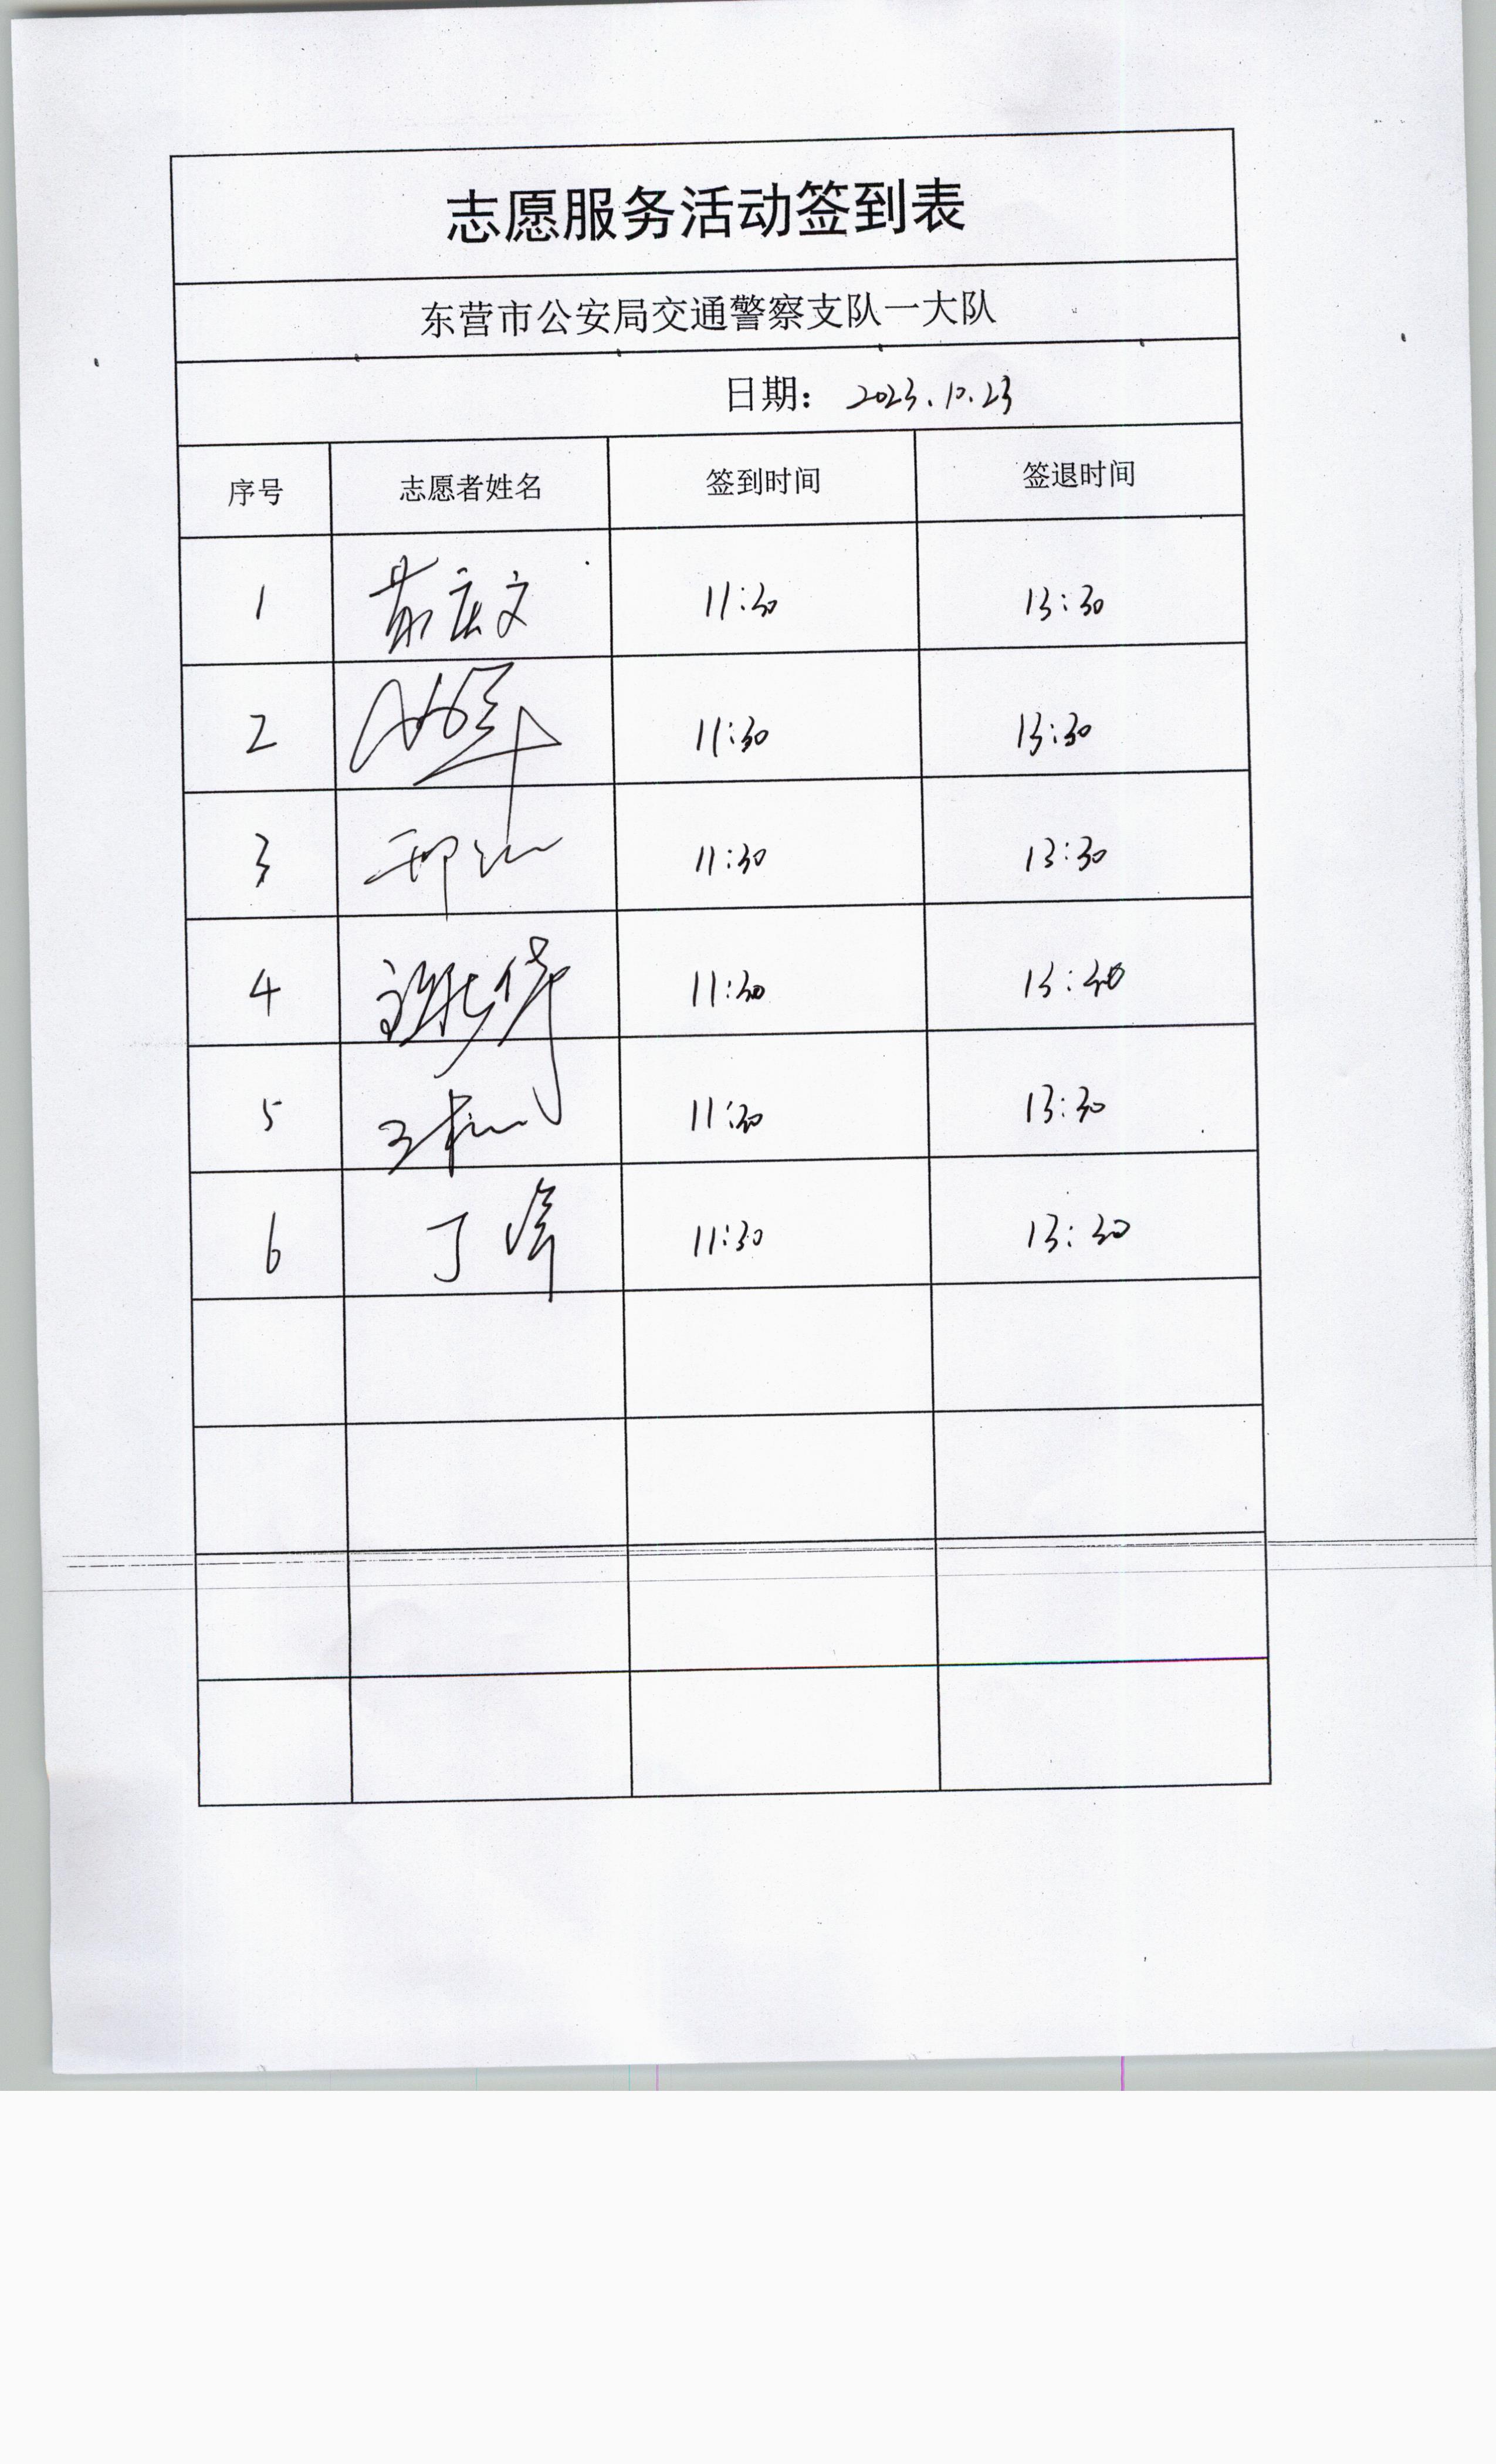 志愿服务活动签到表
东营市公安局交通警察支队一大队
日期: 2023.10.23
序号 志愿者姓名 签到时间 签退时间
1 庆文 11:30 13:30
2 11:30 13:30
3 11:30 13:30
4 11:30 13:30
5 王 11:30 13:30
6 丁 11:30 13:30